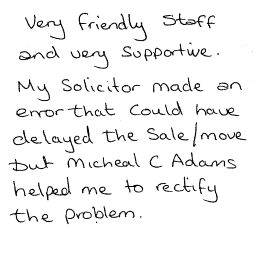 Very friendly Staff
and very Supportive.
My Solicitor made an
error that Could have
delayed the Sale/move
but Micheal C Adams
helped me to rectify
the Problem.